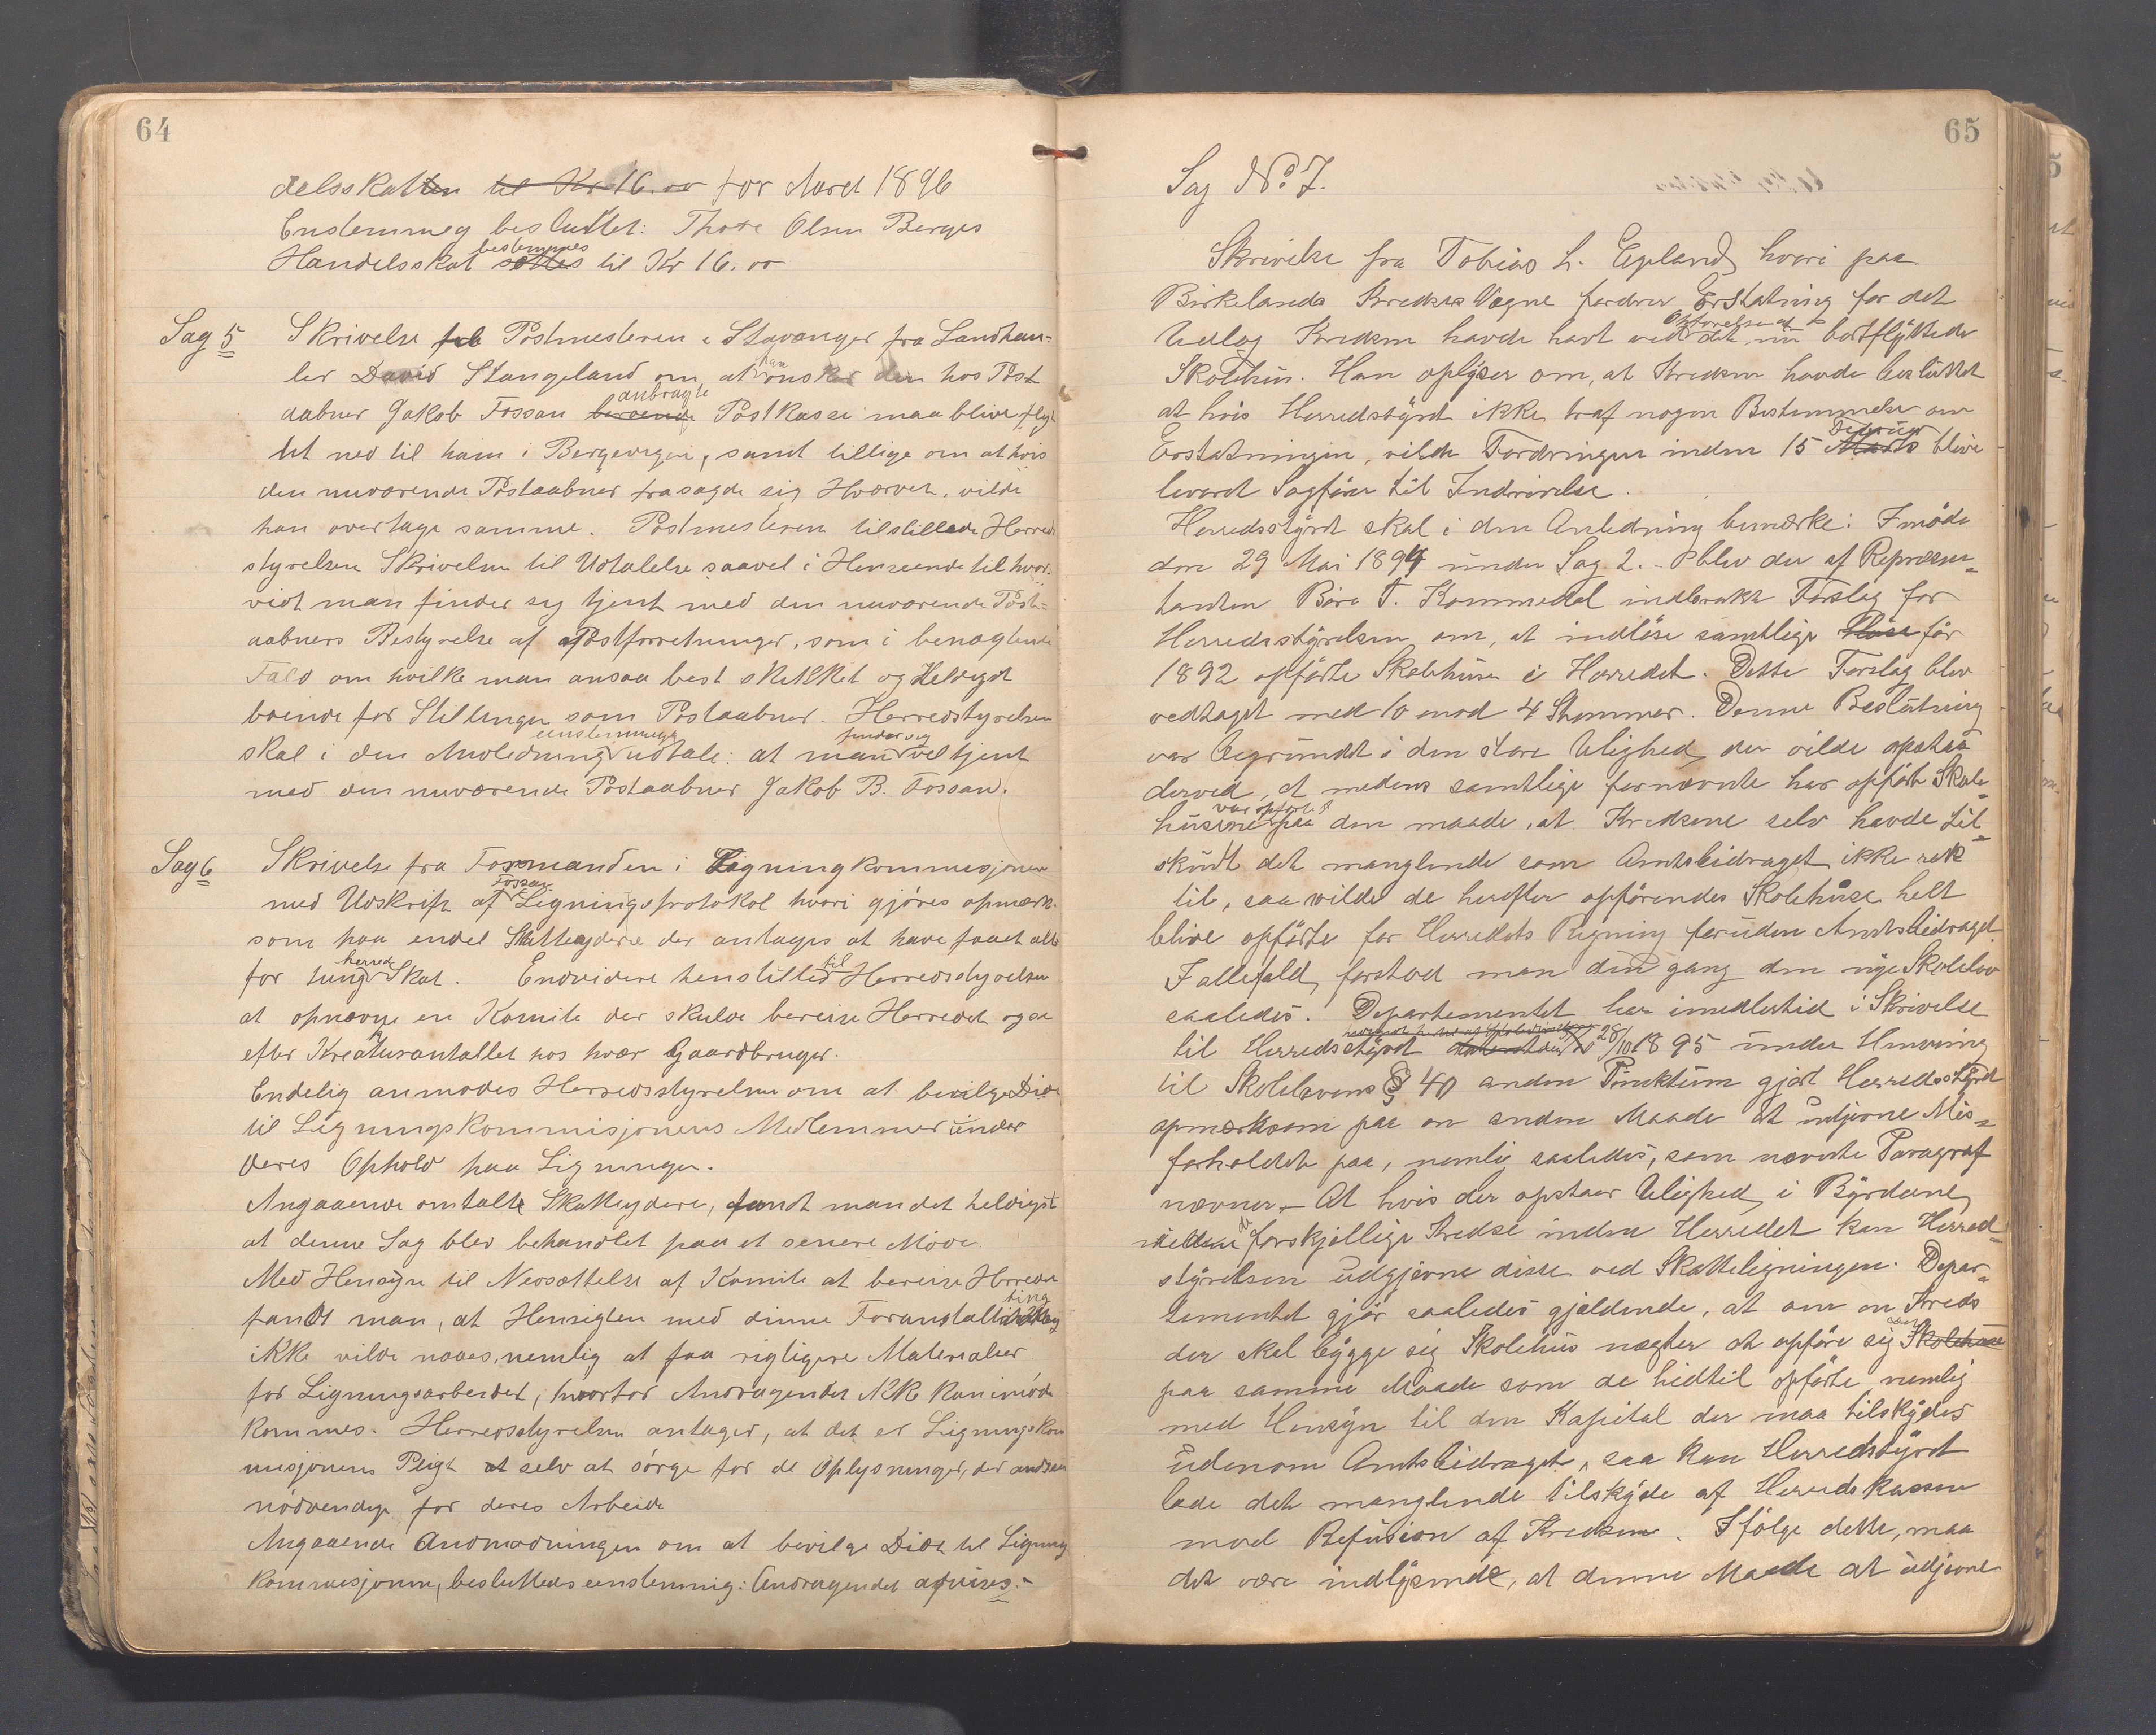 64
delsskatten til Kr 16.00 for Aaret 1896
Enstemmeg besluttet: Thore Olsen Berges
bestemmes
Handelsskat sættes til Kr 16.00
Sag 5 Skrivelse til Postmesteren i Stavanger fra Landhan-
ler David Stangeland om, at han önsker den hos Post
anbragte
aabner Jakob Fossan Postkasse maa blive flyt
tet ned til ham i Bergevigen, samt tillige om at hvis
den nuværende Postaabner frasagde sig Hvervet, vilde
han overtage samme. Postmesteren tilstillede Herred
styrelsen Skrivelsen til Udtalelse saavel i Henseende til hvor-
vidt man finder sig tjent med den nuværende Post-
aabners Bestyrelse af Postforretninger, som i benægtende
Fald om hvilke man ansaa best skikket og Heldigst
boende for Stillingen som Postaabner. Herredstyrelsen
enstemmige finder sig
skal i den Anledning udtale: at man vel tjent
med den nuværende Postaabner Jakob B. Fossan.
Sag 6 Skrivelse fra Formanden i Ligningkommisjonen
Fossan
med Udskrift af Ligningsprotokol hvori gjöres opmærk-
som paa endel Skatteydere der antages at have faaet alt
herred til
for tung Skat. Endvidere henstilles Herredsstyrelsen
at opnævne en Komite der skulde bereise Herredet og se
efter Kreaturantallet hos hvær Gaardbruger.
Endelig anmodes Herredsstyrelsen om at bevilge Diæt
til Ligningskommisjonens Medlemmer under
deres Ophold paa Ligningen.
Angaaende omtalte Skatteydere, fandt man det heldigst
at denne Sag blev behandlet paa et senere Möde
Med Hensyn til Nedsættelse af Komite at bereise Herredet
fandt man, at Hensigten med denne Foranstaltning
ting
ikke vilde naaes, nemlig at faa rigtigere Materialier
for Ligningsarbeidet, hvorfor Andragendet ikke kan imöde
kommes. Herredsstyrelsen antager, at det er Ligningskom
misjonens Pligt at selv at sörge for de Oplysninger, der ansees
nödvendige for deres Arbeide
Angaaende Andmodningen om at bevilge Diæt til Ligning
kommisjonen, beslutteds eenstemmig: Andragendet afvises.-
65
Sag No 7.
Skrivelse fra Tobias L. Epland hvori paa
Birkelands Kredses Vægne fordrer Erstatning for det
Opförelse af
Udlæg Kredsen havde havt ved det nu bortflyttede
Skolehus. Han oplyser om, at Kredsen havde besluttet
at hvis Herredstyret ikke traf nogen Bestemmelse om
Februar
Erstatningen, vilde Fordringen inden 15 Marts blive
leveret Sagförer til Indrivelse.
Herredsstyret skal i den Anledning bemærke: I möde
den 29 Mai 1894 under Sag 2. - blev der af Repræsen-
tanten Böre T. Kommedal indbrakt Forslag for
Herredsstyrelsen om, at indlöse samtlige för
1892 opförte Skolehuse i Herredet. Dette Forslag blev
vedtaget med 10 mod 4 Stemmer. Denne Beslutning
var begrundet i den store Ulighed der vilde opstaa
derved, at medens samtlige fornævnte har opfört Skole-
var opfört
husene paa den maade, at Kredsene selv havde til-
skudt det manglende som Amtsbidraget ikke rak
til, saa vilde de herefter opförendes Skolehuse helt
blive opförte for Herredets Regning foruden Amtsbidraget.
I allefald forstod man dengang den nye Skolelov
saaledes. Departementet har imedlertid i Skrivelse
til Herredsstyret 28/10 1895 under Henvisning
til Skolelovens § 40 anden Punktum gjort Herredsstyret
opmærksom paa en anden Maade at udjevne Mis-
forholdet paa, nemlig saaledes, som nævnte Paragraf
nævner,- At hvis der opstaar Ulighed i Byrderne
de
mellem forskjellige Kredse inden Herredet kan Herred-
styrelsen udgjevne disse ved Skatteligningen. Depar-
tementet gjör saaledes gjældende, at om en Kreds
der skal bygge sig Skolehus nægter at opföre sig Skolehuse
paa samme Maade som de hidtil opförte nemlig
med Hensyn til den Kapital der maa tilskydes
udenom Amtsbidraget, saa kan Herredsstyret
lade det manglende tilskyde af Herredskassen
mod Refusion af Kredsen. Ifölge dette, maa
det være indlysende, at denne Maade at udjevne